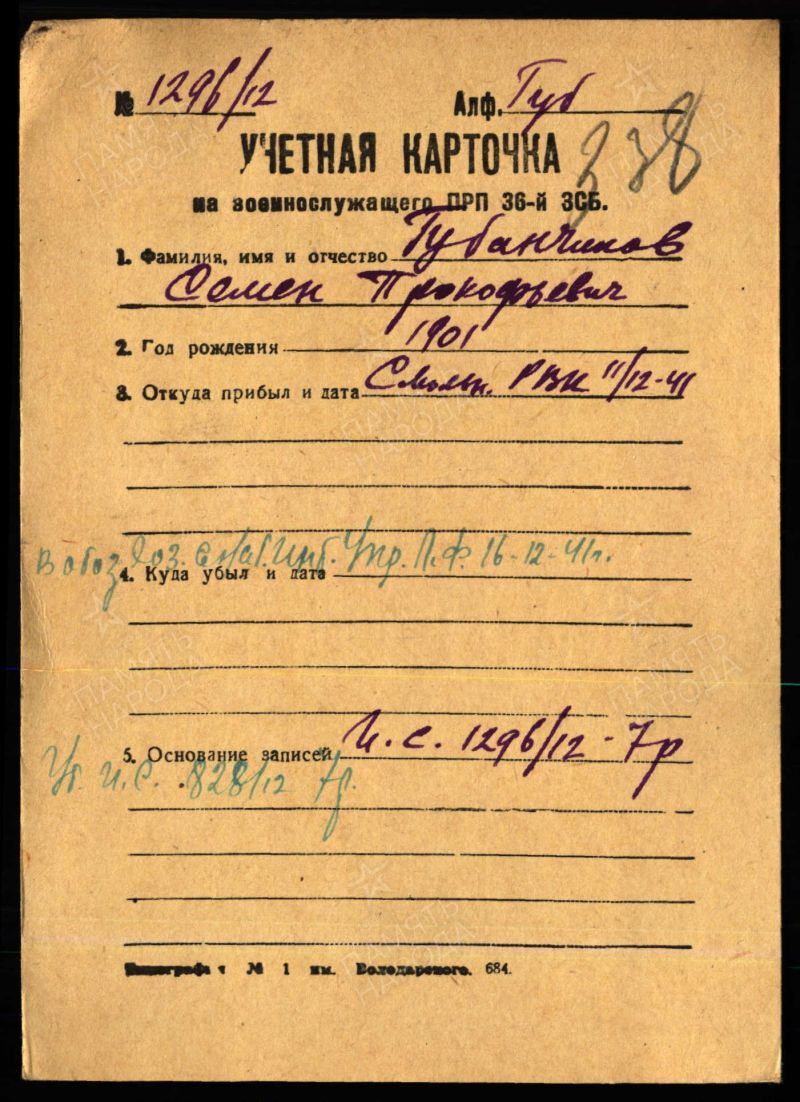 № 1296/12 Алф. Губ
338
УЧЕТНАЯ КАРТОЧКА
на военнослужащего ПРП 36-й ЗСБ.
1. Фамилия, имя и отчество Губанчиков
Семен Прокофьевич
2. Год рождения 1901
3. Откуда прибыл и дата Смольн. РВК 11/12-41
В обоз Упр. Л.Ф. 16-12-41г.
4. Куда убыл и дата
5. Основание записей И.С. 1296/12-7р
Уб. И.С. 828/12 7р.
Типография № 1 им. Володарского. 684.
ПАМЯТЬ НАРОДА